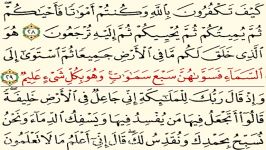 كَيْفَ تَكْفُرُونَ بِاللَّهِ وَكُنتُمْ أَمْوَاتًا فَأَحْيَاكُمْ
ثُمَّ يُمِيتُكُمْ ثُمَّ يُحْيِيكُمْ ثُمَّ إِلَيْهِ تُرْجَعُونَ ٢٨ هُوَ
الَّذِي خَلَقَ لَكُم مَّا فِي الْأَرْضِ جَمِيعًا ثُمَّ اسْتَوَىٰ إِلَى
السَّمَاءِ فَسَوَّاهُنَّ سَبْعَ سَمَاوَاتٍ وَهُوَ بِكُلِّ شَيْءٍ عَلِيمٌ ٢٩
وَإِذْ قَالَ رَبُّكَ لِلْمَلَائِكَةِ إِنِّي جَاعِلٌ فِي الْأَرْضِ خَلِيفَةً
قَالُوا أَتَجْعَلُ فِيهَا مَن يُفْسِدُ فِيهَا وَيَسْفِكُ الدِّمَاءَ وَنَحْنُ
نُسَبِّحُ بِحَمْدِكَ وَنُقَدِّسُ لَكَ قَالَ إِنِّي أَعْلَمُ مَا لَا تَعْلَمُونَ